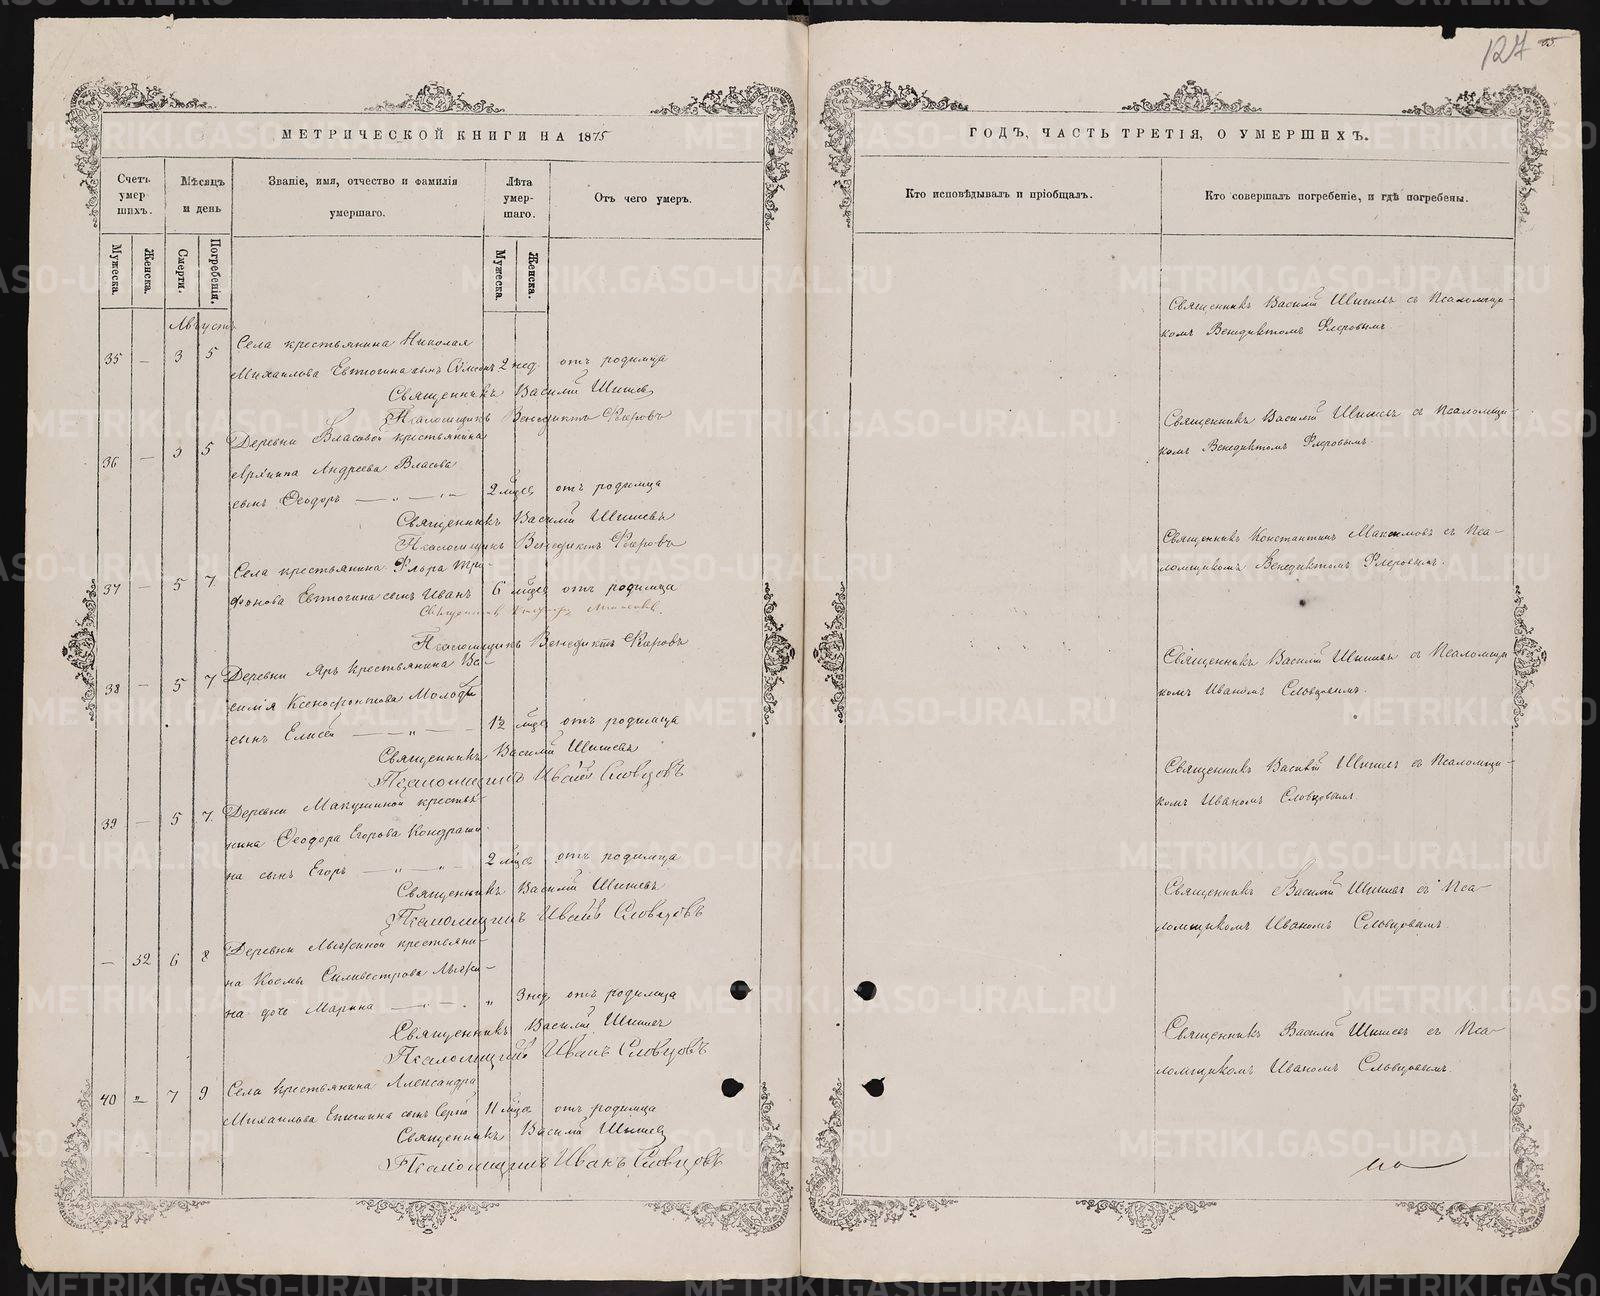 127
МЕТРИЧЕСКОЙ КНИГИ НА 1875
ГОДЪ, ЧАСТЬ ТРЕТІЯ, О УМЕРШИХЪ.
Счетъ умер шихъ.
Мѣсяцъ и день
Званіе, имя, отчество и фамилія умершаго.
Лѣта умер- шаго.
Отъ чего умеръ.
Кто исповѣдывалъ и пріобщалъ.
Кто совершалъ погребеніе, и гдѣ погребены.
Мужеска.
Женска.
Смерти.
Погребенія.
Мужеска.
Женска.
Августъ
Села крестьянина Николая
35 — 3 5 Михаилова Евтюгина сынъ 2 нед отъ родимца
Священникъ Василій Шишевъ
Псаломщикъ Венедиктъ Флеровъ
Священникъ Василій Шишевъ съ Псаломщи-
комъ Венедиктомъ Флеровымъ
Деревни Власовой крестьянина
36 — 3 5 Андреева Власова
сынъ Ѳеодоръ — „ — „ — 2 мѣсе отъ родимца
Священникъ Василій Шишевъ
Псаломщикъ Венедиктъ Флеровъ
Священникъ Василій Шишевъ съ Псаломщи-
комъ Венедиктомъ Флеровымъ.
Села крестьянина Флора Три-
37 — 5 7 фонова Евтюгина сынъ Иванъ 6 мѣсе отъ родимца
Псаломщикъ Венедиктъ Флеровъ
Священникъ Константинъ Максимовъ съ Пса-
ломщикомъ Венедиктомъ Флеровымъ.
Деревни Яръ крестьянина Ва-
38 — 5 7 силія Ксенофонтова Молодых
сынъ Елисей — „ — 1½ мѣсе отъ родимца
Священникъ Василій Шишевъ
Псаломщикъ Иванъ Словцовъ
Священникъ Василій Шишевъ съ Псаломщи
комъ Иваномъ Словцовымъ.
Деревни Макушиной крестья-
39 — 5 7 нина Ѳеодора Егорова Кондраши-
на сынъ Егоръ — „ — „ — 2 мѣсе отъ родимца
Священникъ Василій Шишевъ
Псаломщикъ Иванъ Словцовъ
Священникъ Василій Шишевъ съ Псаломщи-
комъ Иваномъ Словцовымъ.
Деревни Лыжиной крестьяни-
— 32 6 8 на Космы Силивестрова Лыжи-
на дочь Марина — „ — „ 3 нед отъ родимца
Священникъ Василій Шишевъ
Псаломщикъ Иванъ Словцовъ
Священникъ Василій Шишевъ съ Пса-
ломщикомъ Иваномъ Словцовымъ.
Села крестьянина Александра
40 „ 7 9 Михаилова Епишина сынъ Сергій 11 мѣсе отъ родимца
Священникъ Василій Шишевъ
Псаломщикъ Иванъ Словцовъ
Священникъ Василій Шишевъ съ Пса-
ломщикомъ Иваномъ Словцовымъ.
METRIKI.GASO-URAL.RU